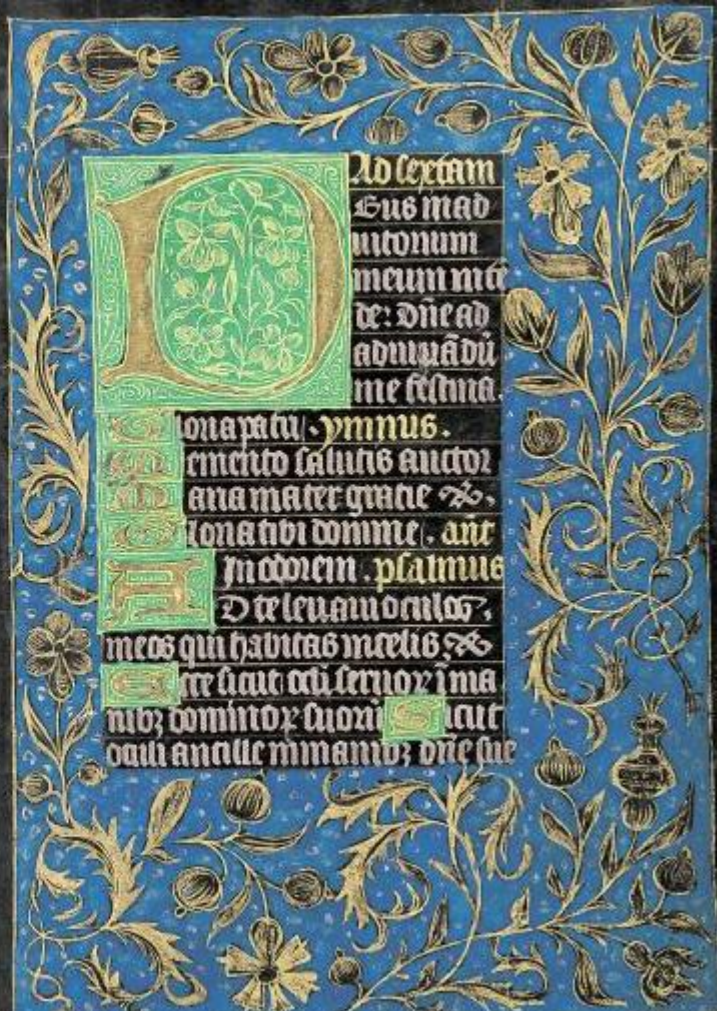 Ad sextam
Deus in ad
iutorium
meum inte
de: dn̄e ad
adiuuādū
me festina.
Gloria patri. ymnus.
Memento salutis auctor
Maria mater gratie ⁊c.
Gloria tibi domine. ant̄
In odorem. psalmus
AD te leuaui oculos.
meos qui habitas in celis: ⁊
Ecce sicut oculi seruoꝝ ī ma
nibꝫ dominoꝝ suorū Sicut
oculi ancille in manibꝫ dn̄e sue